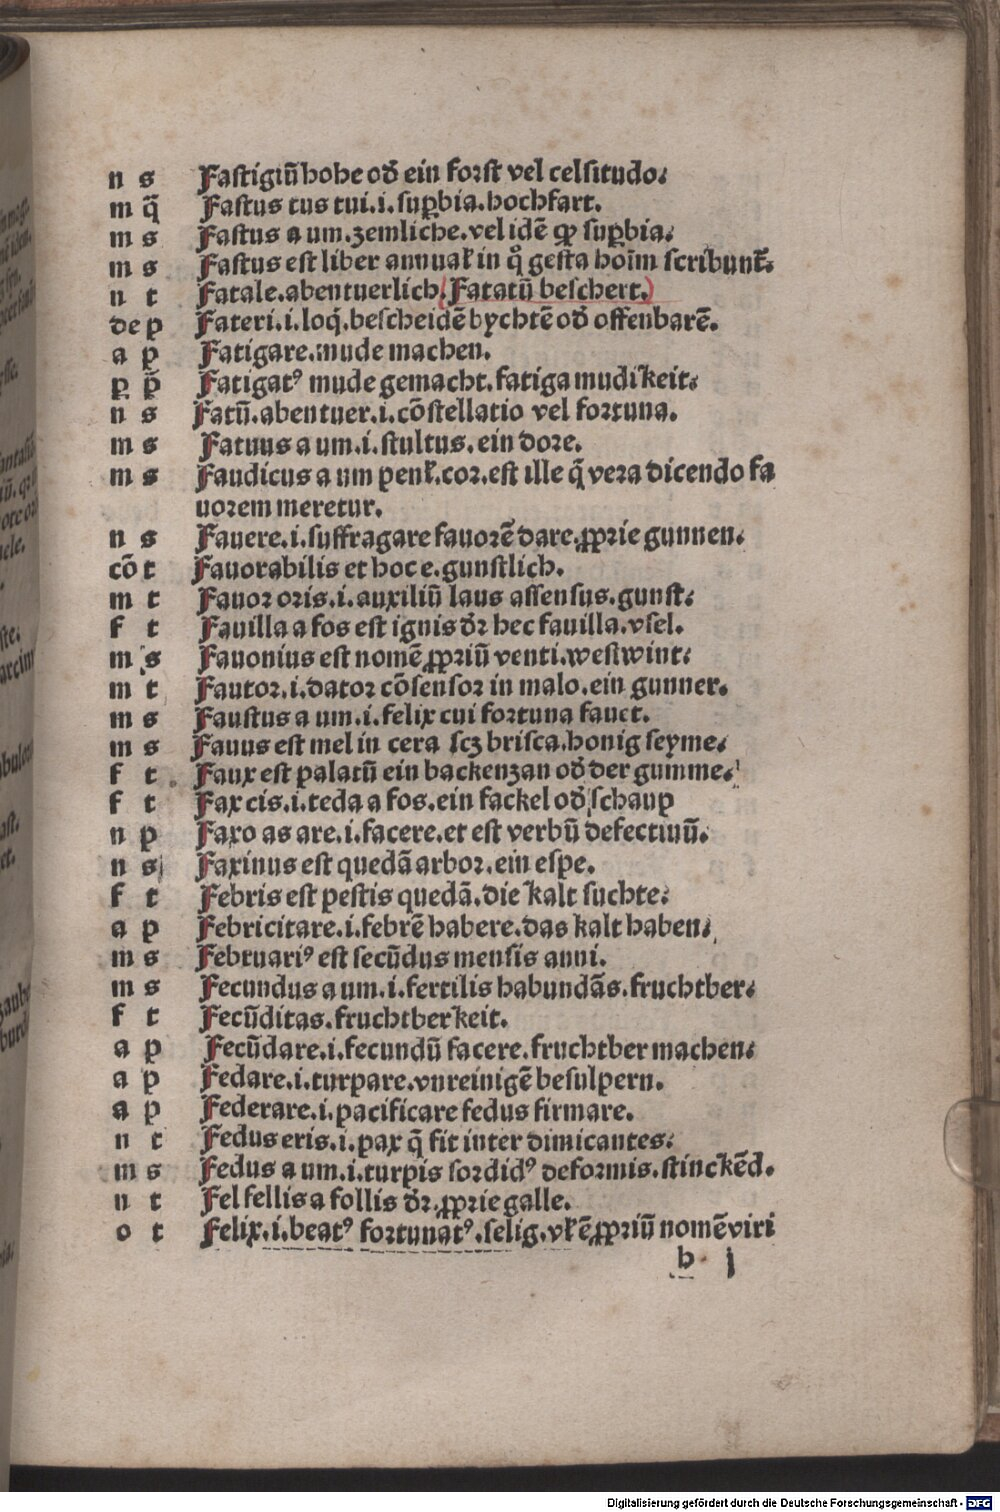 n s Fastigiū hohe od̄ ein forst vel celsitudo.
m q̄ Fastus tus tui.i.suꝑbia.hochfart.
m s Fastus a um.zemliche.vel idē qꝫ suꝑbia.
m s Fastus est liber annual̄ in qͦ gesta hoīm scribunt̄.
n t Fatale.abentuerlich.(Fatatū beschert.)
de p Fateri.i.loq̄.bescheidē bychtē od̄ offenbarē.
a p Fatigare.mude machen.
ꝑ p̄ Fatigatꝰ mude gemacht.fatiga mudikeit.
n s Fatū.abentuer.i.cōstellatio vel fortuna.
m s Fatuus a um.i.stultus.ein dore.
m s Faudicus a um penl̄.cor.est ille q̄ vera dicendo fa
uorem meretur.
n s Fauere.i.suffragare fauorē dare.ꝓprie gunnen.
cō t Fauorabilis et hoc e.gunstlich.
m t Fauor oris.i.auxiliū laus assensus.gunst.
f t Fauilla a fos est ignis dr̄ hec fauilla.vsel.
m s Fauonius est nomē ꝓpriū venti.westwint.
m t Fautor.i.dator cōsensor in malo.ein gunner.
m s Faustus a um.i.felix cui fortuna fauet.
m s Fauus est mel in cera scꝫ brisca.honig seyme.
f t Faux est palatū ein backenzan od̄ der gumme.
f t Fax cis.i.teda a fos.ein fackel od̄ schaup
n p Faxo as are.i.facere.et est verbū defectiuū.
n s Faxinus est quedā arbor.ein espe.
f t Febris est pestis quedā.die kalt suchte.
a p Febricitare.i.febrē habere.das kalt haben.
m s Februariꝰ est secūdus mensis anni.
m s Fecundus a um.i.fertilis habundās.fruchtber.
f t Fecūditas.fruchtberkeit.
a p Fecūdare.i.fecundū facere.fruchtber machen.
a p Fedare.i.turpare.vnreinigē besulpern.
a p Federare.i.pacificare fedus firmare.
n t Fedus eris.i.pax q̄ fit inter dimicantes.
m s Fedus a um.i.turpis sordidꝰ deformis.stinckēd.
n t Fel fellis a follis dr̄.ꝓprie galle.
o t Felix.i.beatꝰ fortunatꝰ.selig.vl̄ ē ꝓpriū nomē viri
h j
Digitalisierung gefördert durch die Deutsche Forschungsgemeinschaft - DFG